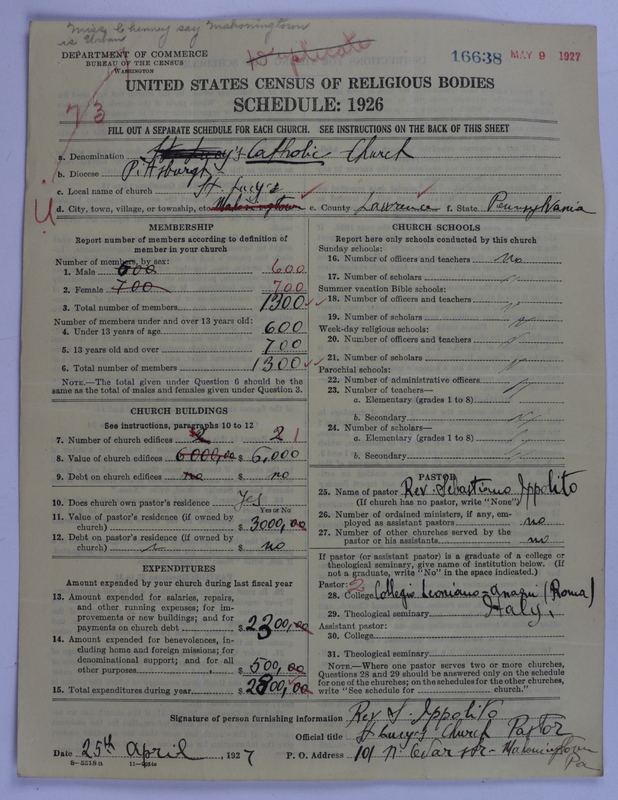 Miss Chenney say Mahoningtown
is Urban
DEPARTMENT OF COMMERCE
BUREAU OF THE CENSUS
WASHINGTON
16638 MAY 9 1927
73
UNITED STATES CENSUS OF RELIGIOUS BODIES
SCHEDULE: 1926
FILL OUT A SEPARATE SCHEDULE FOR EACH CHURCH. SEE INSTRUCTIONS ON THE BACK OF THIS SHEET
a. Denomination St Lucy's Catholic Church
b. Diocese Pittsburgh
c. Local name of church St Lucy's
U
d. City, town, village, or township, etc Mahoningtown e. County Lawrence f. State Pennsylvania
MEMBERSHIP
Report number of members according to definition of
member in your church
Number of members, by sex:
1. Male 600 600
2. Female 700 700
3. Total number of members 1300
Number of members under and over 13 years old:
4. Under 13 years of age 600
5. 13 years old and over 700
6. Total number of members 1300
NOTE.—The total given under Question 6 should be the
same as the total of males and females given under Question 3.
CHURCH BUILDINGS
See instructions, paragraphs 10 to 12
7. Number of church edifices 2 2 1
8. Value of church edifices 6000,00 $ 6,000
9. Debt on church edifices no $ no
10. Does church own pastor's residence Yes
Yes or No
11. Value of pastor's residence (if owned by
church) $ 3000,00
12. Debt on pastor's residence (if owned by
church) $ no
EXPENDITURES
Amount expended by your church during last fiscal year
13. Amount expended for salaries, repairs,
and other running expenses; for im-
provements or new buildings; and for
payments on church debt $ 2300,00
14. Amount expended for benevolences, in-
cluding home and foreign missions; for
denominational support; and for all
other purposes $ 500,00
15. Total expenditures during year $ 2800,00
CHURCH SCHOOLS
Report here only schools conducted by this church
Sunday schools:
16. Number of officers and teachers no
17. Number of scholars
Summer vacation Bible schools:
18. Number of officers and teachers
19. Number of scholars
Week-day religious schools:
20. Number of officers and teachers
21. Number of scholars
Parochial schools:
22. Number of administrative officers
23. Number of teachers—
a. Elementary (grades 1 to 8)
b. Secondary
24. Number of scholars—
a. Elementary (grades 1 to 8)
b. Secondary
PASTOR
25. Name of pastor Rev. Sebastiano Ippolito
(If church has no pastor, write "None")
26. Number of ordained ministers, if any, em-
ployed as assistant pastors no
27. Number of other churches served by the
pastor or his assistants no
If pastor (or assistant pastor) is a graduate of a college or
theological seminary, give name of institution below. (If
not a graduate, write "No" in the space indicated.)
Pastor: 2
28. College Collegio Leoniano - Anagni (Roma)
29. Theological seminary Italy.
Assistant pastor:
30. College
31. Theological seminary
NOTE.—Where one pastor serves two or more churches,
Questions 28 and 29 should be answered only on the schedule
for one of the churches; on the schedules for the other churches,
write "See schedule for church."
Signature of person furnishing information Rev S. Ippolito
Official title St Lucy's Church Pastor
Date 25th April, 1927 P. O. Address 101 N Cedar str - Mahoningtown
Pa
8—5518 a